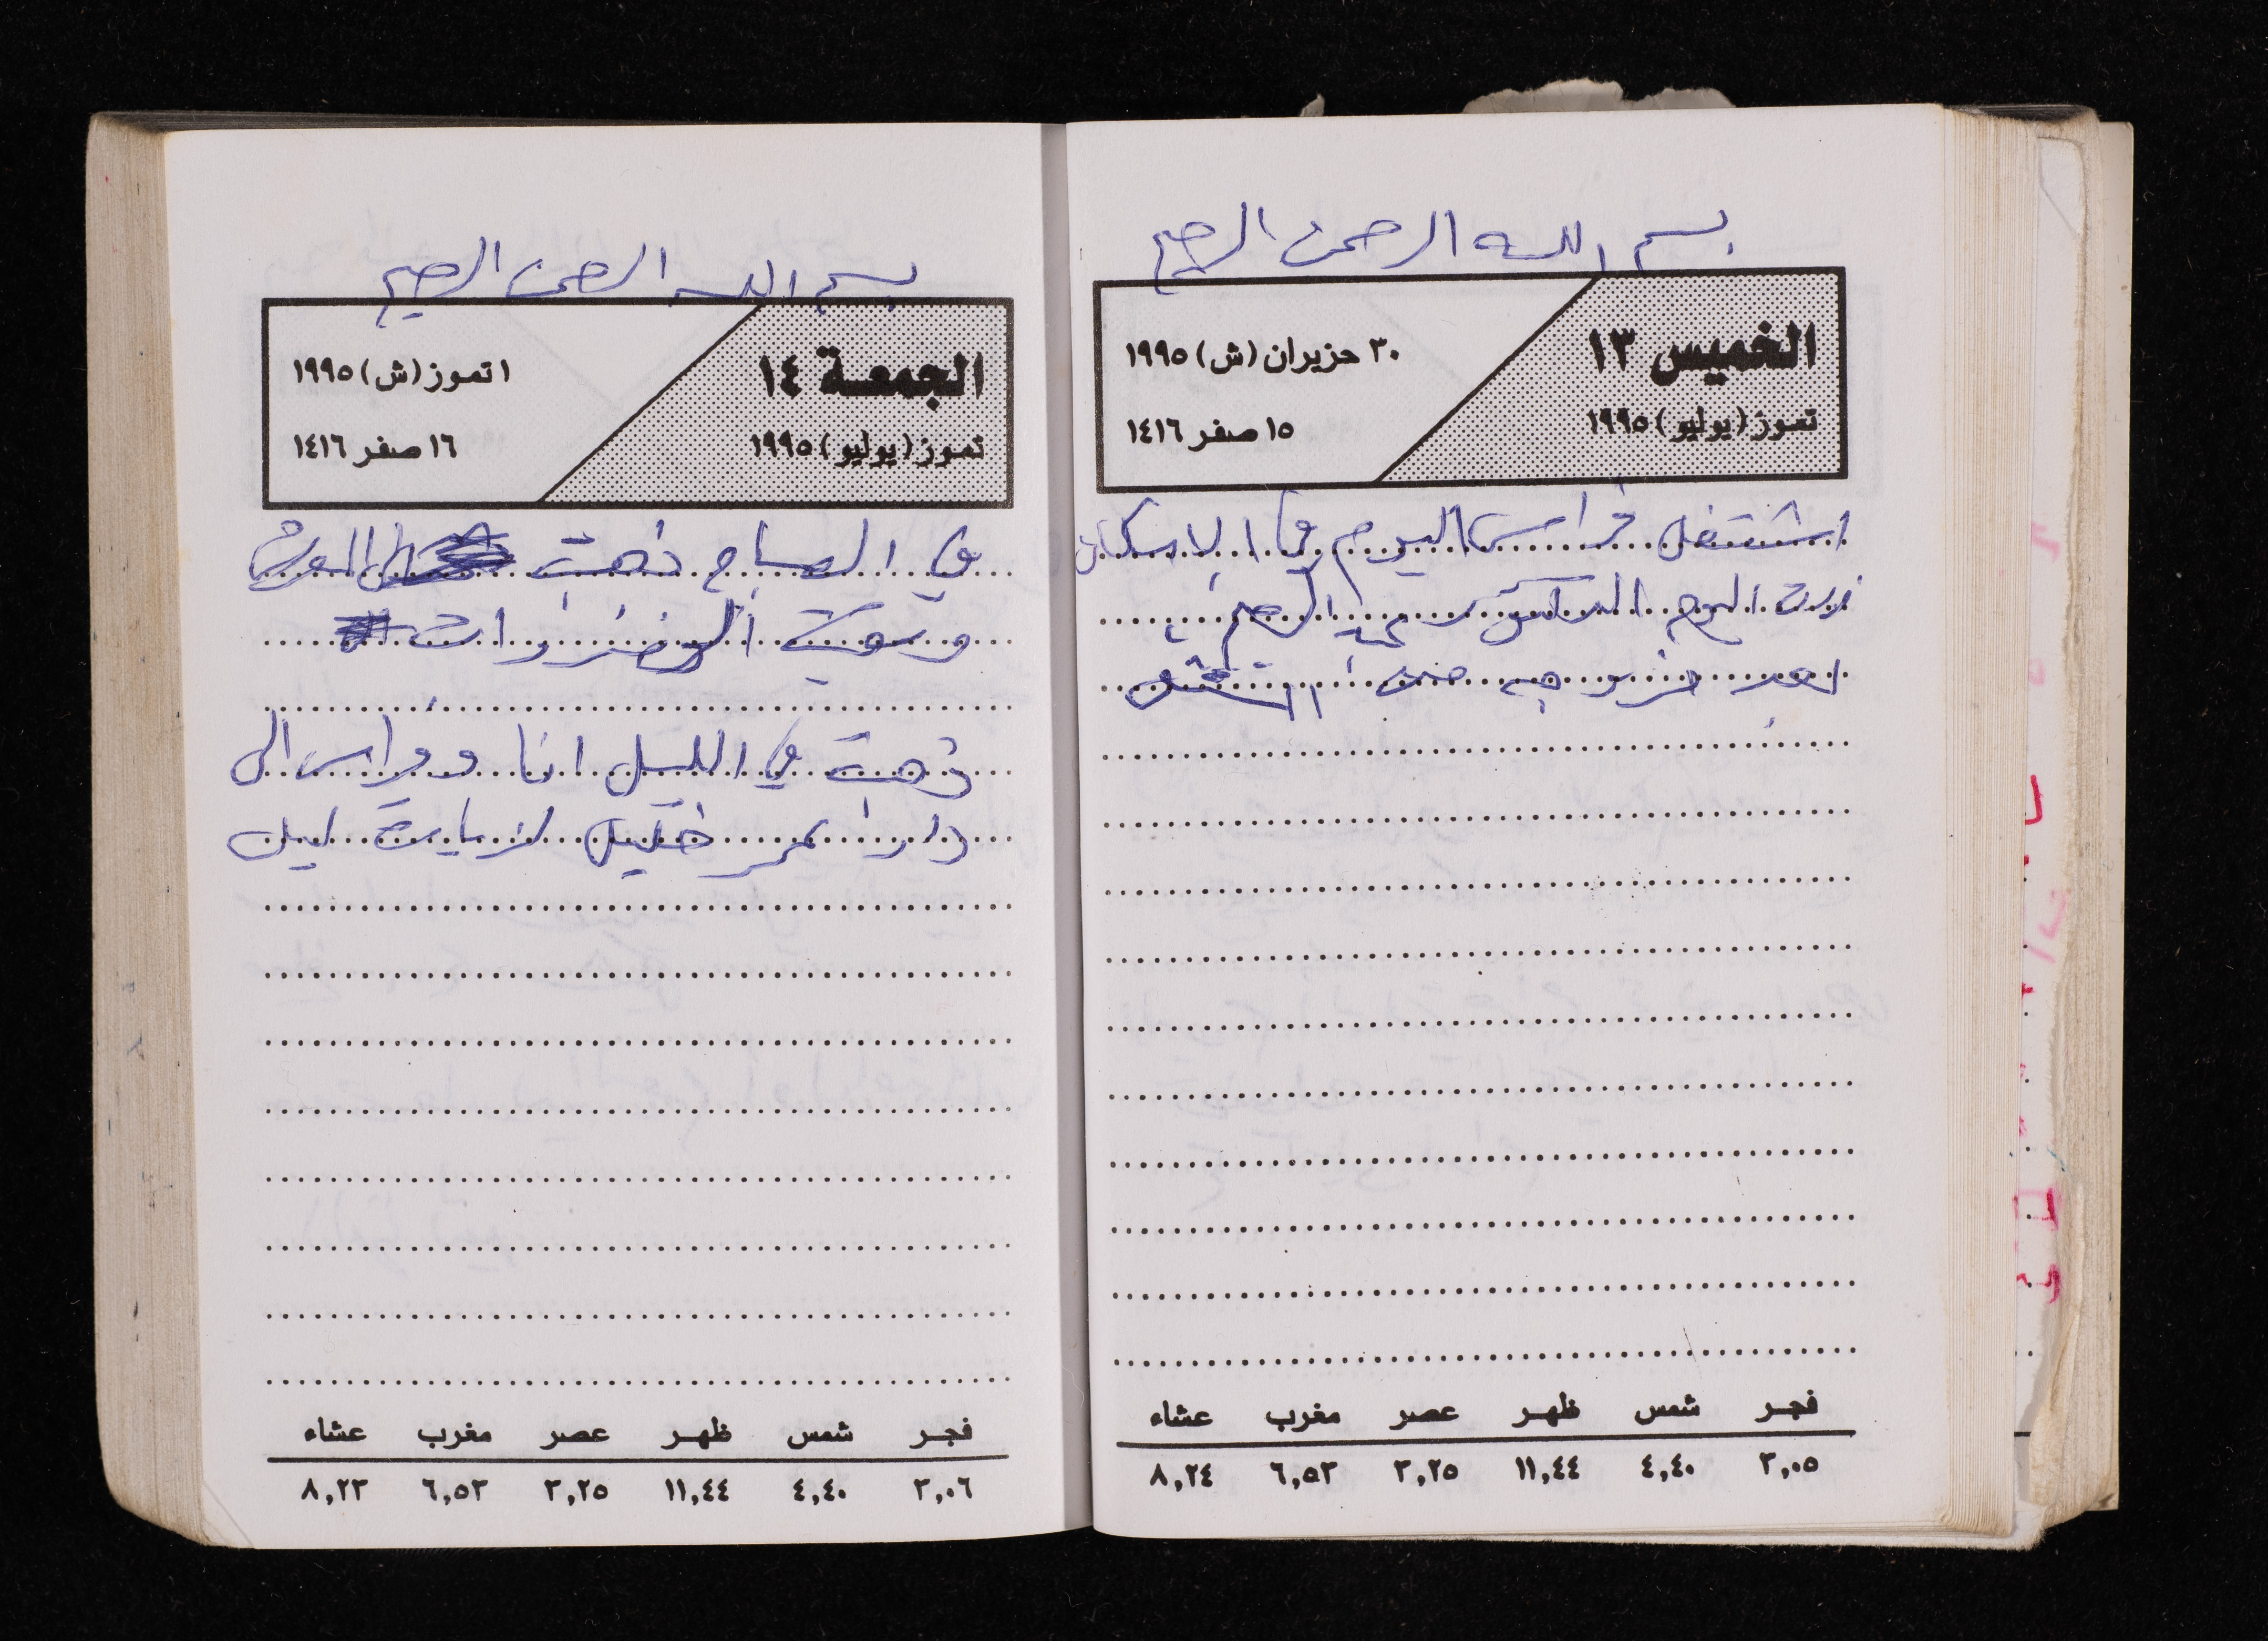 بسم الله الرحمن الرحيم
الخميس ١٣
تموز (يوليو) ١٩٩٥
٣٠ حزيران (ش) ١٩٩٥
١٥ صفر ١٤١٦
اشتغل فراس اليوم في الاسكان
زرت اليوم الدكتور عبد الرحيم
بعد خروجه من
فجر شمس ظهر عصر مغرب عشاء
٣,٠٥ ٤,٤٠ ١١,٤٤ ٣,٢٥ ٦,٥٣ ٨,٢٤
بسم الله الرحمن الرحيم
الجمعة ١٤
تموز (يوليو) ١٩٩٥
١ تموز (ش) ١٩٩٥
١٦ صفر ١٤١٦
في الصباح ذهبت الى
وسقيت الخضروات
ذهبت في الليل انا وفراس الى
دار نمر خليل لزيارة
فجر شمس ظهر عصر مغرب عشاء
٣,٠٦ ٤,٤٠ ١١,٤٤ ٣,٢٥ ٦,٥٣ ٨,٢٣